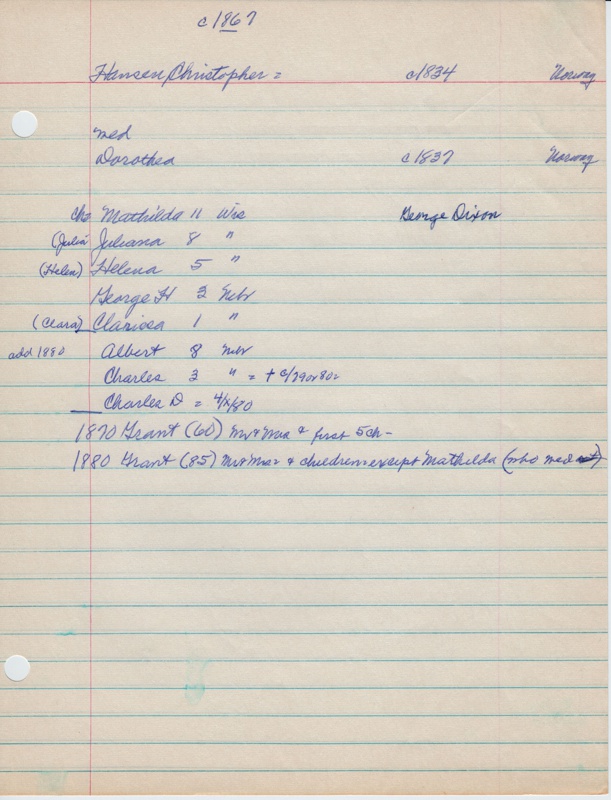 c 1867
Hansen, Christopher = c1834 Norway
med
Dorothea c1837 Norway
Chs Mathilda 11 Wis George Dixon
(Julia) Juliana 8 "
(Helen) Helena 5 "
George H 3 Nebr
(Clara) Clarissa 1 "
add 1880 Albert 8 Nebr
Charles 3 " = + c/79 or 80 =
Charles D = 4/x/80
1870 Grant (60) Mr & Mrs & first 5 ch -
1880 Grant (85) Mr & Mrs = & children except Mathilda (who med)